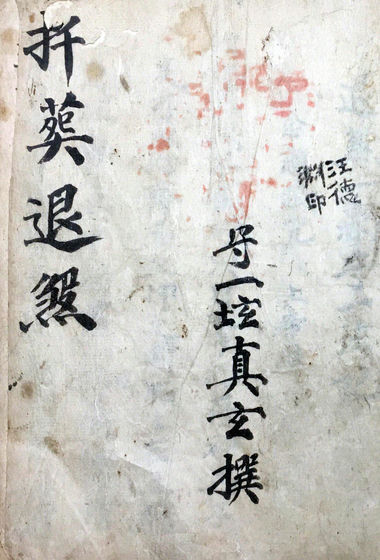 汪德
渊印
守一坛真玄撰
扦葬退煞